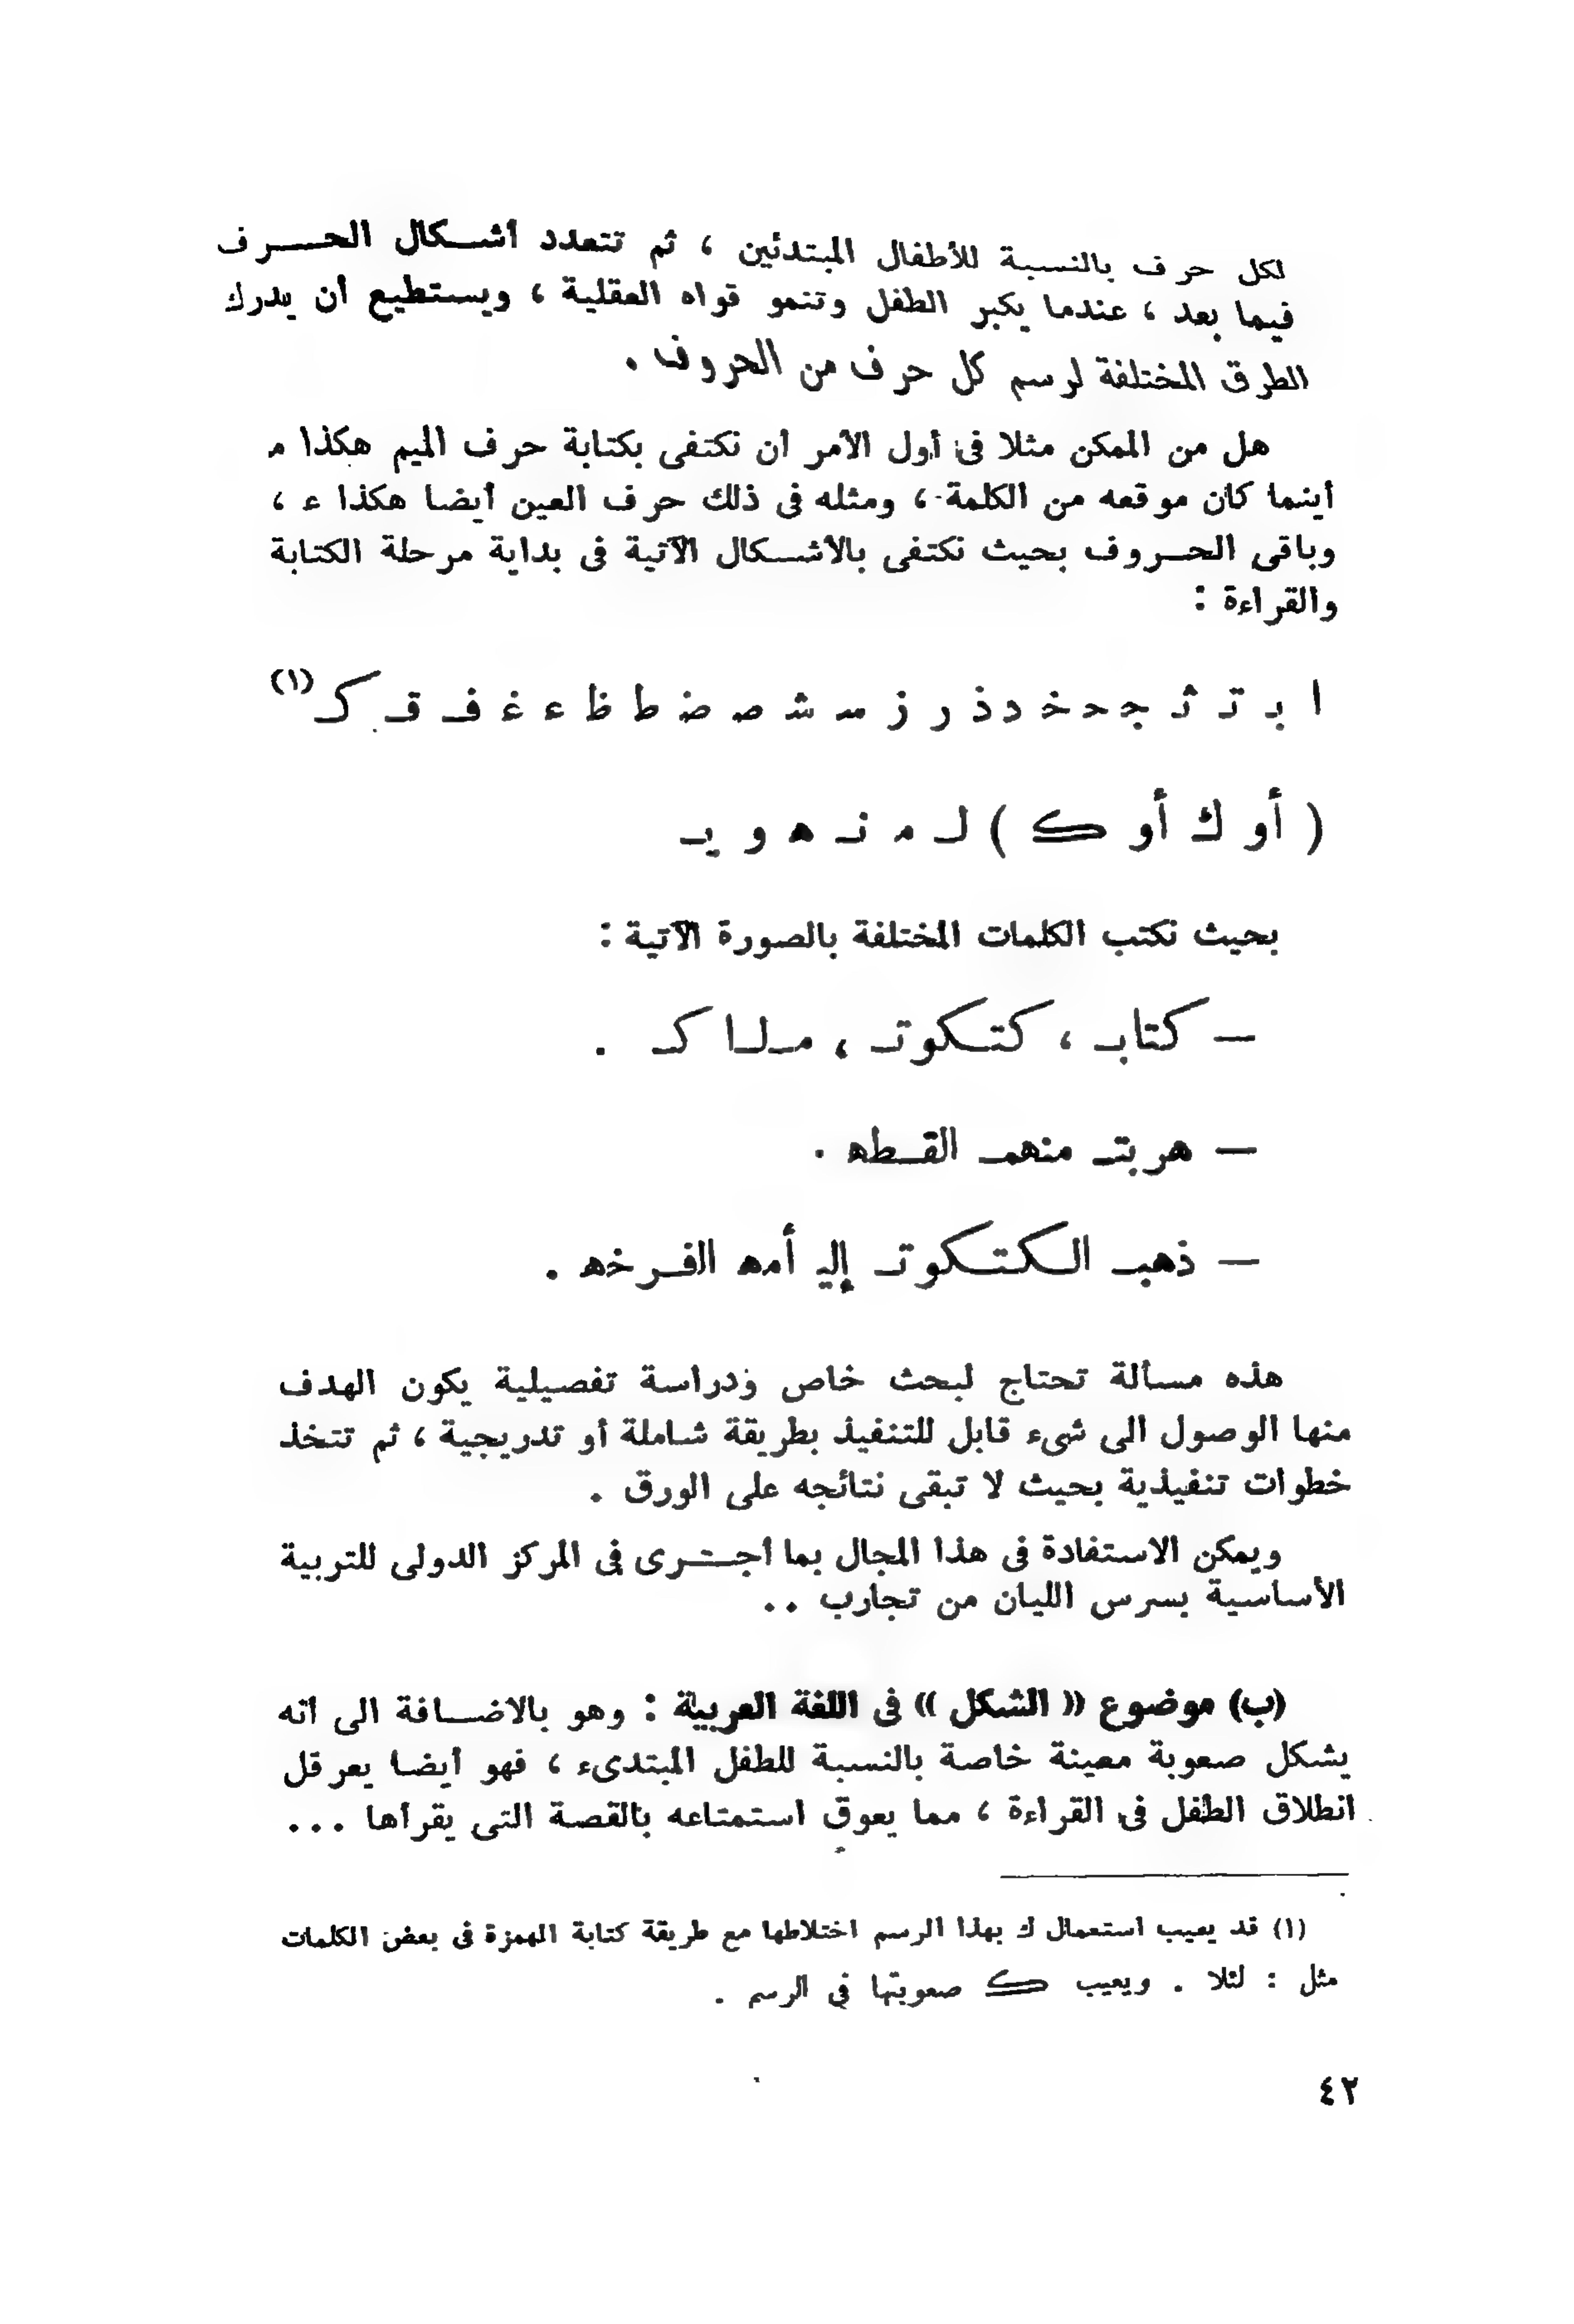 لكل حرف بالنسبة للأطفال المبتدئين ، ثم تتعدد أشكال الحـــرف
فيما بعد ، عندما يكبر الطفل وتنمو قواه العقلية ، ويستطيع أن يدرك
الطرق المختلفة لرسم كل حرف من الحروف .
هل من الممكن مثلا فى أول الأمر أن نكتفى بكتابة حرف الميم هكذا مـ
أينما كان موقعه من الكلمة ، ومثله فى ذلك حرف العين أيضا هكذا عـ ،
وباقى الحـروف بحيث نكتفى بالأشـكال الآتية فى بداية مرحلة الكتابة
والقراءة :
ا بـ تـ ثـ جـ حـ خـ د ذ ر ز سـ شـ صـ ضـ ط ظ عـ غـ فـ قـ كـ (١)
( أو ك أو ڪ ) لـ مـ نـ هـ و يـ
بحيث نكتب الكلمات المختلفة بالصورة الآتية :
— كتابـ ، كتـكوتـ ، مـلـا كـ .
— هربتـ منهمـ القـطهـ .
— ذهبـ الـكتـكوتـ إليـ أمهـ الفـرخهـ .
هذه مسألة تحتاج لبحث خاص ودراسة تفصيلية يكون الهدف
منها الوصول الى شىء قابل للتنفيذ بطريقة شاملة أو تدريجية ، ثم تتخذ
خطوات تنفيذية بحيث لا تبقى نتائجه على الورق .
ويمكن الاستفادة فى هذا المجال بما أجـرى فى المركز الدولى للتربية
الأساسية بسرس الليان من تجارب ..
(ب) موضوع « الشكل » فى اللغة العربية : وهو بالاضـافة الى أنه
يشكل صعوبة معينة خاصة بالنسبة للطفل المبتدىء ، فهو أيضا يعرقل
انطلاق الطفل فى القراءة ، مما يعوق استمتاعه بالقصة التى يقرأها ...
(١) قد يعيب استعمال ك بهذا الرسم اختلاطها مع طريقة كتابة الهمزة فى بعض الكلمات
مثل : لئلا . ويعيب ڪ صعوبتها فى الرسم .
٤٢